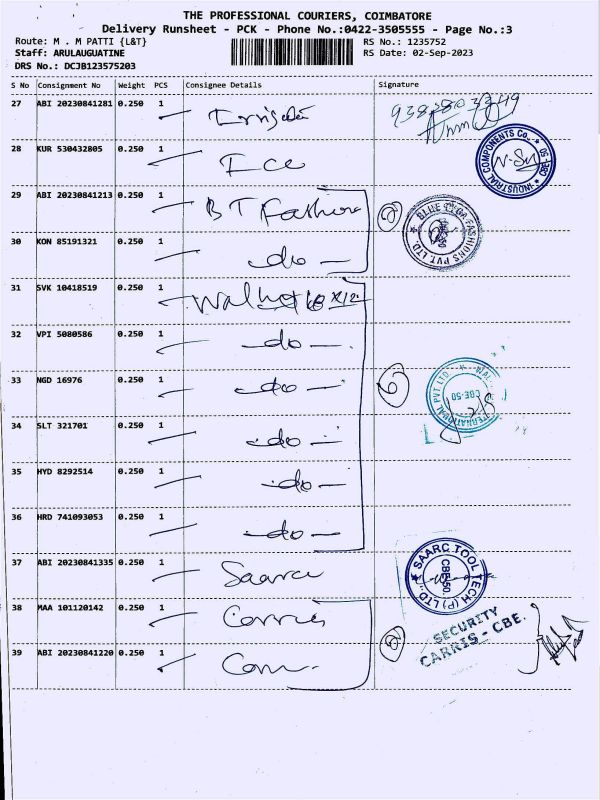 THE PROFESSIONAL COURIERS, COIMBATORE
Delivery Runsheet - PCK - Phone No.:0422-3505555 - Page No.:3
Route: M . M PATTI {L&T} RS No.: 1235752
Staff: ARULAUGUATINE RS Date: 02-Sep-2023
DRS No.: DCJB123575203
S No Consignment No Weight PCS Consignee Details Signature
27 ABI 20230841281 0.250 1
28 KUR 530432805 0.250 1 Ice INDUSTRIAL COMPONENTS Co.,
29 ABI 20230841213 0.250 1 BT Fashion 2 FASHIONS PVT. LTD.
30 KON 85191321 0.250 1 - do -
31 SVK 10418519 0.250 1
32 VPI 5080586 0.250 1 - do - .
33 NGD 16976 0.250 1 - do - 6 INTERNATIONAL PVT LTD. CBE-50
34 SLT 321701 0.250 1 - do -
35 HYD 8292514 0.250 1 - do -
36 HRD 741093053 0.250 1 - do -
37 ABI 20230841335 0.250 1 Saarc SAARC TOOL TECH (P) LTD., CBE-50.
38 MAA 101120142 0.250 1 Carris SECURITY
39 ABI 20230841220 0.250 1 2 CARRIS - CBE.